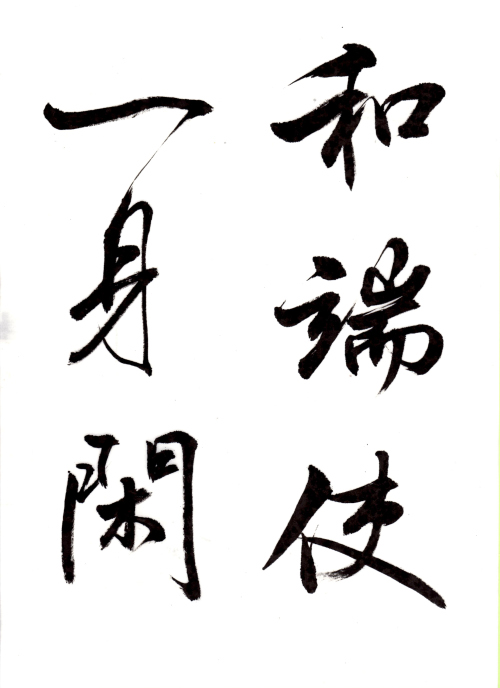 和端使
一身閑